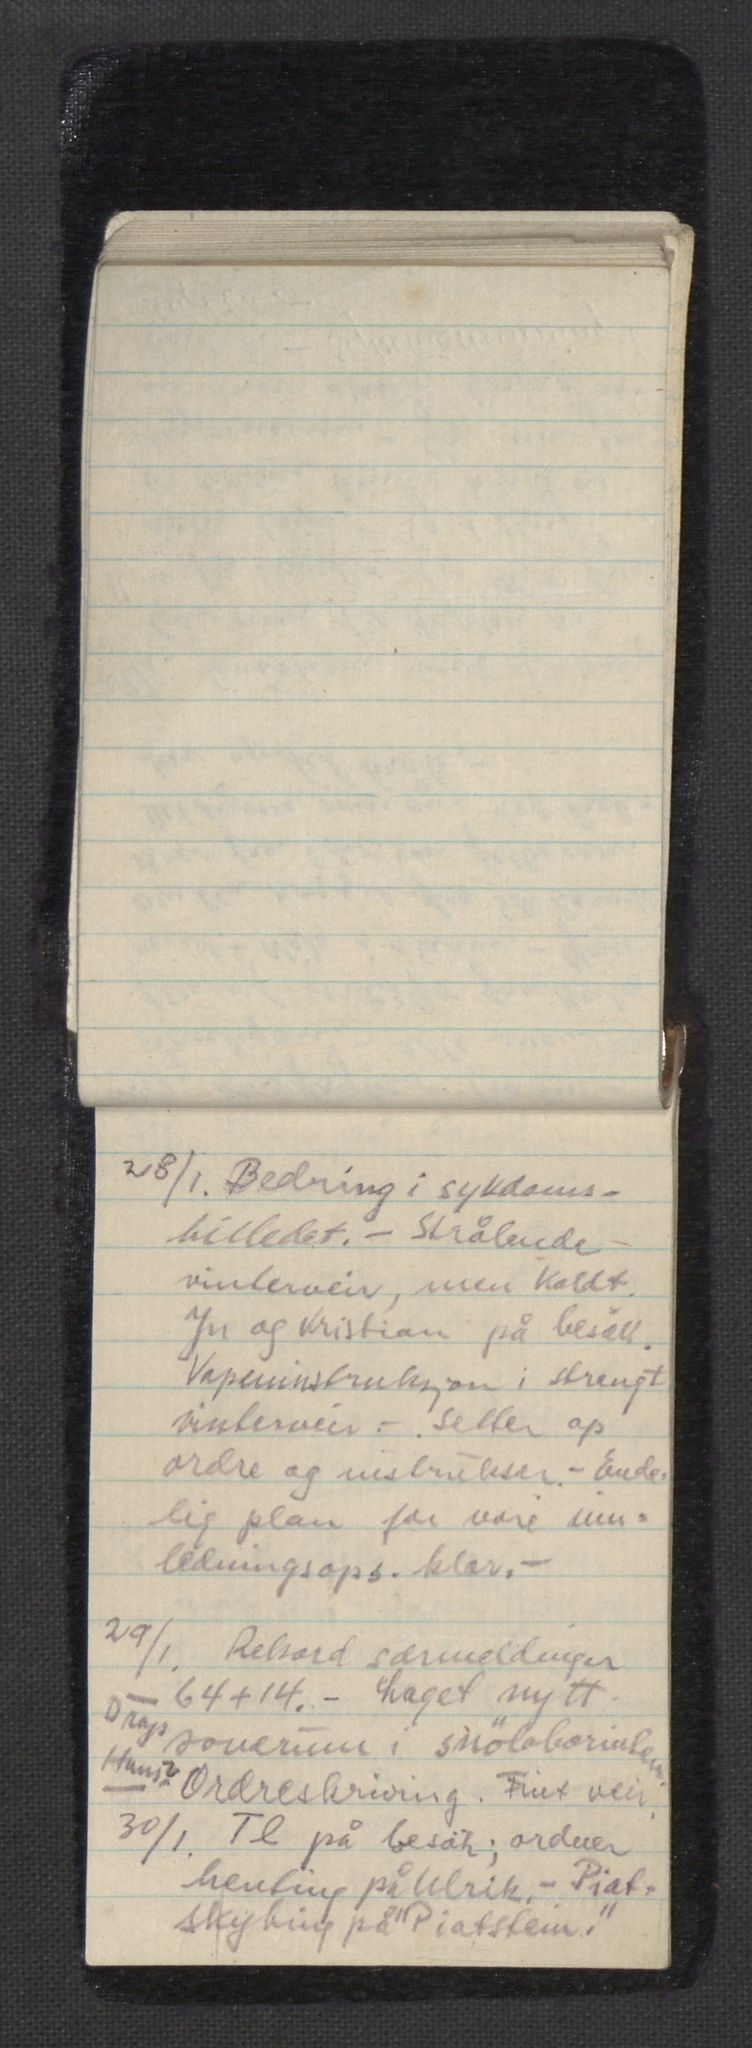 28/1. Bedring i sykdoms-
billedet. - Strålende
vinterveir, men koldt.
Jn og Kristian på besøk.
Vapeninstruksjon i strengt
vinterveir. - Setter op
ordre og instrukser. - Ende-
lig plan for våre inn-
ledningsops. klar. -
29/1. Rekord særmeldinger
64 + 14. - Laget nytt
soverum i snölaborintem
Ordreskriving. Fint veir.
30/1. Tl på besök; ordner
henting på Ulrik. - Piat-
skyting på "Piatstein."